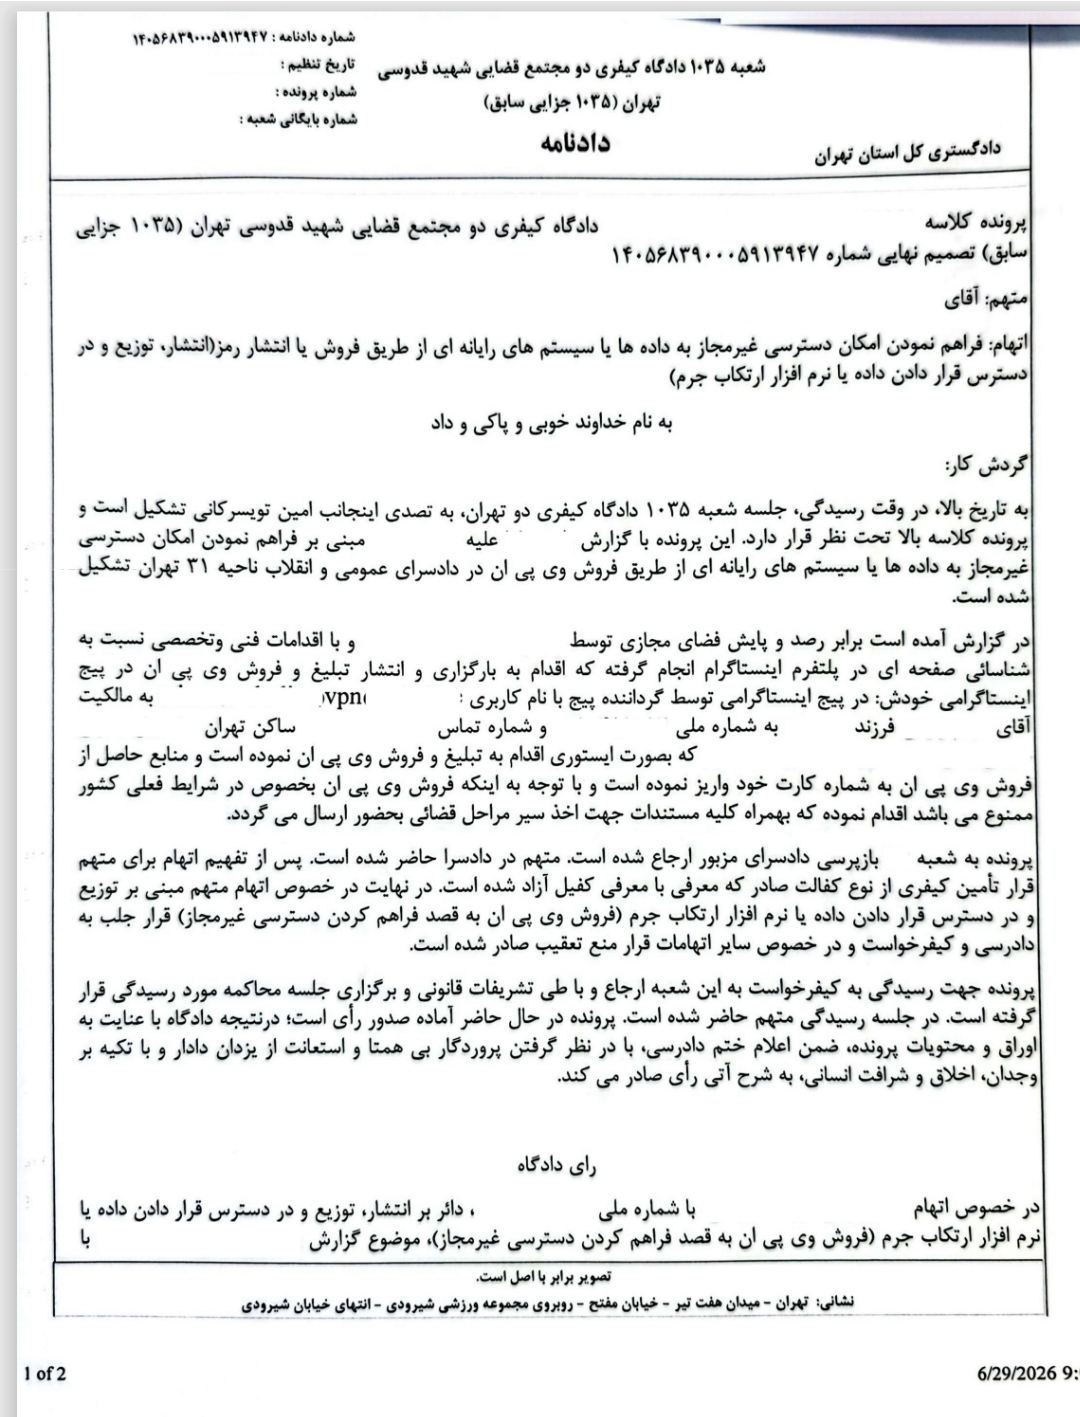 شماره دادنامه : ۱۴۰۵۶۸۳۹۰۰۰۵۹۱۳۹۴۷
تاریخ تنظیم :
شماره پرونده :
شماره بایگانی شعبه :
شعبه ۱۰۳۵ دادگاه کیفری دو مجتمع قضایی شهید قدوسی
تهران (۱۰۳۵ جزایی سابق)
دادنامه
دادگستری کل استان تهران
پرونده کلاسه دادگاه کیفری دو مجتمع قضایی شهید قدوسی تهران (۱۰۳۵ جزایی
سابق) تصمیم نهایی شماره ۱۴۰۵۶۸۳۹۰۰۰۵۹۱۳۹۴۷
متهم: آقای
اتهام: فراهم نمودن امکان دسترسی غیرمجاز به داده ها یا سیستم های رایانه ای از طریق فروش یا انتشار رمز(انتشار، توزیع و در
دسترس قرار دادن داده یا نرم افزار ارتکاب جرم)
به نام خداوند خوبی و پاکی و داد
گردش کار:
به تاریخ بالا، در وقت رسیدگی، جلسه شعبه ۱۰۳۵ دادگاه کیفری دو تهران، به تصدی اینجانب امین تویسرکانی تشکیل است و
پرونده کلاسه بالا تحت نظر قرار دارد. این پرونده با گزارش علیه مبنی بر فراهم نمودن امکان دسترسی
غیرمجاز به داده ها یا سیستم های رایانه ای از طریق فروش وی پی ان در دادسرای عمومی و انقلاب ناحیه ۳۱ تهران تشکیل
شده است.
در گزارش آمده است برابر رصد و پایش فضای مجازی توسط و با اقدامات فنی وتخصصی نسبت به
شناسائی صفحه ای در پلتفرم اینستاگرام انجام گرفته که اقدام به بارگزاری و انتشار تبلیغ و فروش وی پی ان در پیج
اینستاگرامی خودش: در پیج اینستاگرامی توسط گرداننده پیج با نام کاربری : vpn به مالکیت
آقای فرزند به شماره ملی و شماره تماس ساکن تهران
که بصورت ایستوری اقدام به تبلیغ و فروش وی پی ان نموده است و منابع حاصل از
فروش وی پی ان به شماره کارت خود واریز نموده است و با توجه به اینکه فروش وی پی ان بخصوص در شرایط فعلی کشور
ممنوع می باشد اقدام نموده که بهمراه کلیه مستندات جهت اخذ سیر مراحل قضائی بحضور ارسال می گردد.
پرونده به شعبه بازپرسی دادسرای مزبور ارجاع شده است. متهم در دادسرا حاضر شده است. پس از تفهیم اتهام برای متهم
قرار تأمین کیفری از نوع کفالت صادر که معرفی با معرفی کفیل آزاد شده است. در نهایت در خصوص اتهام متهم مبنی بر توزیع
و در دسترس قرار دادن داده یا نرم افزار ارتکاب جرم (فروش وی پی ان به قصد فراهم کردن دسترسی غیرمجاز) قرار جلب به
دادرسی و کیفرخواست و در خصوص سایر اتهامات قرار منع تعقیب صادر شده است.
پرونده جهت رسیدگی به کیفرخواست به این شعبه ارجاع و با طی تشریفات قانونی و برگزاری جلسه محاکمه مورد رسیدگی قرار
گرفته است. در جلسه رسیدگی متهم حاضر شده است. پرونده در حال حاضر آماده صدور رأی است؛ درنتیجه دادگاه با عنایت به
اوراق و محتویات پرونده، ضمن اعلام ختم دادرسی، با در نظر گرفتن پروردگار بی همتا و استعانت از یزدان دادار و با تکیه بر
وجدان، اخلاق و شرافت انسانی، به شرح آتی رأی صادر می کند.
رای دادگاه
در خصوص اتهام با شماره ملی ، دائر بر انتشار، توزیع و در دسترس قرار دادن داده یا
نرم افزار ارتکاب جرم (فروش وی پی ان به قصد فراهم کردن دسترسی غیرمجاز)، موضوع گزارش با
تصویر برابر با اصل است.
نشانی: تهران - میدان هفت تیر - خیابان مفتح - روبروی مجموعه ورزشی شیرودی - انتهای خیابان شیرودی
1 of 2
6/29/2026 9: